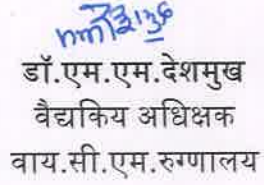 डॉ.एम.एम.देशमुख
वैद्यकिय अधिक्षक
वाय.सी.एम.रुग्णालय